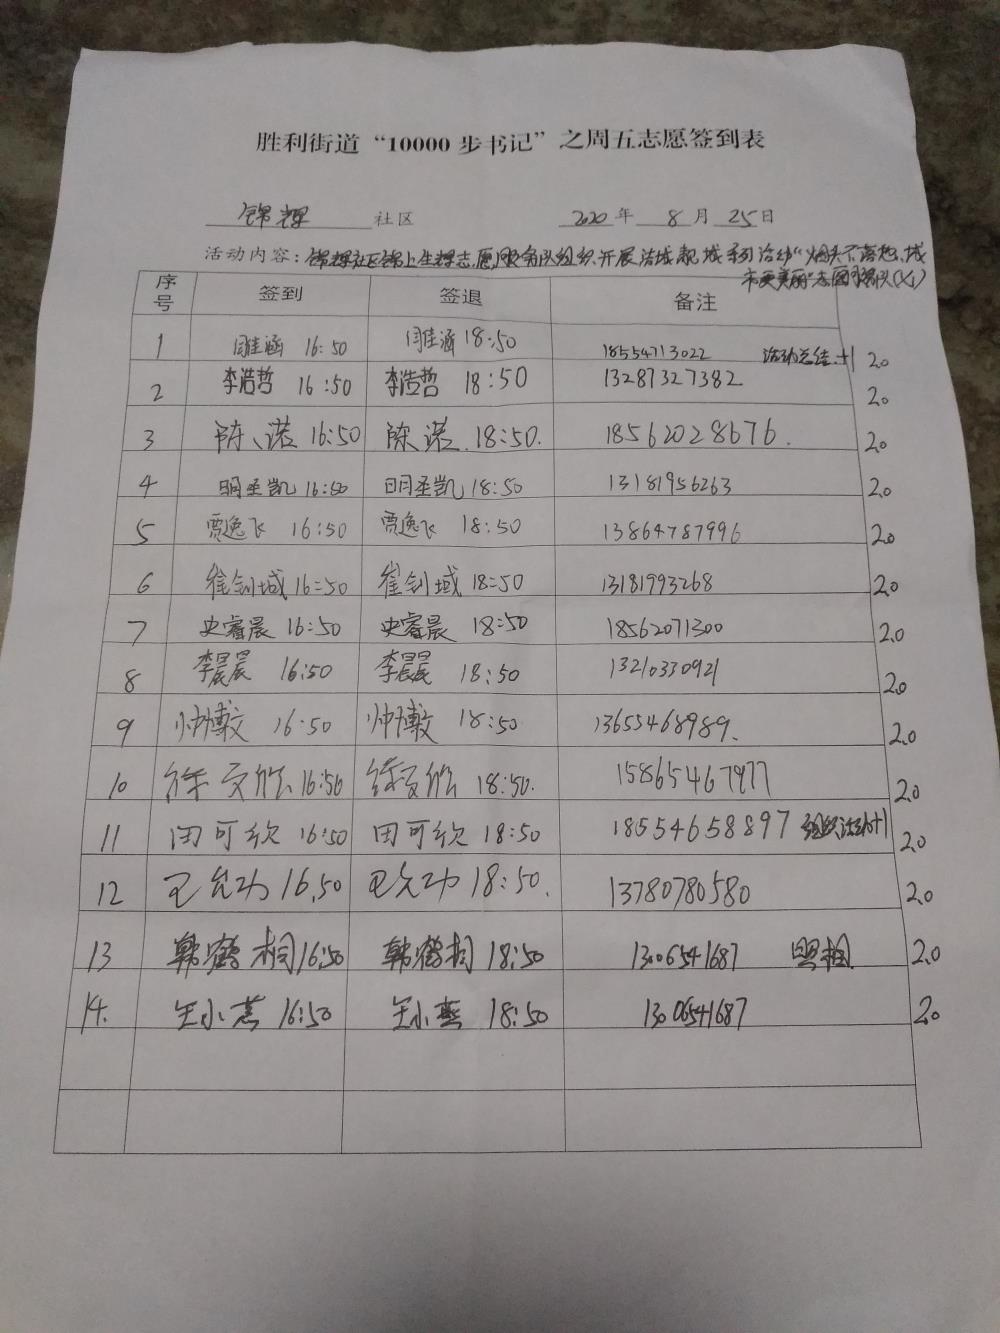 胜利街道“10000步书记”之周五志愿签到表
锦辉 社区 2020 年 8 月 25 日
活动内容：锦辉社区锦上生辉志愿服务队组织开展洁城靓城系列活动“烟头不落地，城
市更美丽”志愿服务队(14)
序号 签到 签退 备注
1 闫佳涵 16:50 闫佳涵 18:50 18554713022 活动总结+1 2.0
2 李浩哲 16:50 李浩哲 18:50 13287327382 2.0
3 陈诺 16:50 陈诺 18:50. 18562028676. 2.0
4 明圣凯 16:50 明圣凯 18:50 13181956263 2.0
5 贾逸飞 16:50 贾逸飞 18:50 13864787996 2.0
6 崔剑域 16:50 崔剑域 18:50 13181993268 2.0
7 史睿晨 16:50 史睿晨 18:50 18562071300 2.0
8 李晨晨 16:50 李晨晨 18:50 13210330921 2.0
9 帅博文 16:50 帅博文 18:50 13655468989. 2.0
10 徐 16:50 徐 18:50. 15865467977 2.0
11 田可欣 16:50 田可欣 18:50 18554658897 组织活动+1 2.0
12 王允功 16.50 王允功 18:50. 13780780580 2.0
13 韩鹤桐 16:50 韩鹤桐 18:50 1306541687 照相 2.0
14. 王小燕 16:50 王小燕 18:50 1306541687 2.0